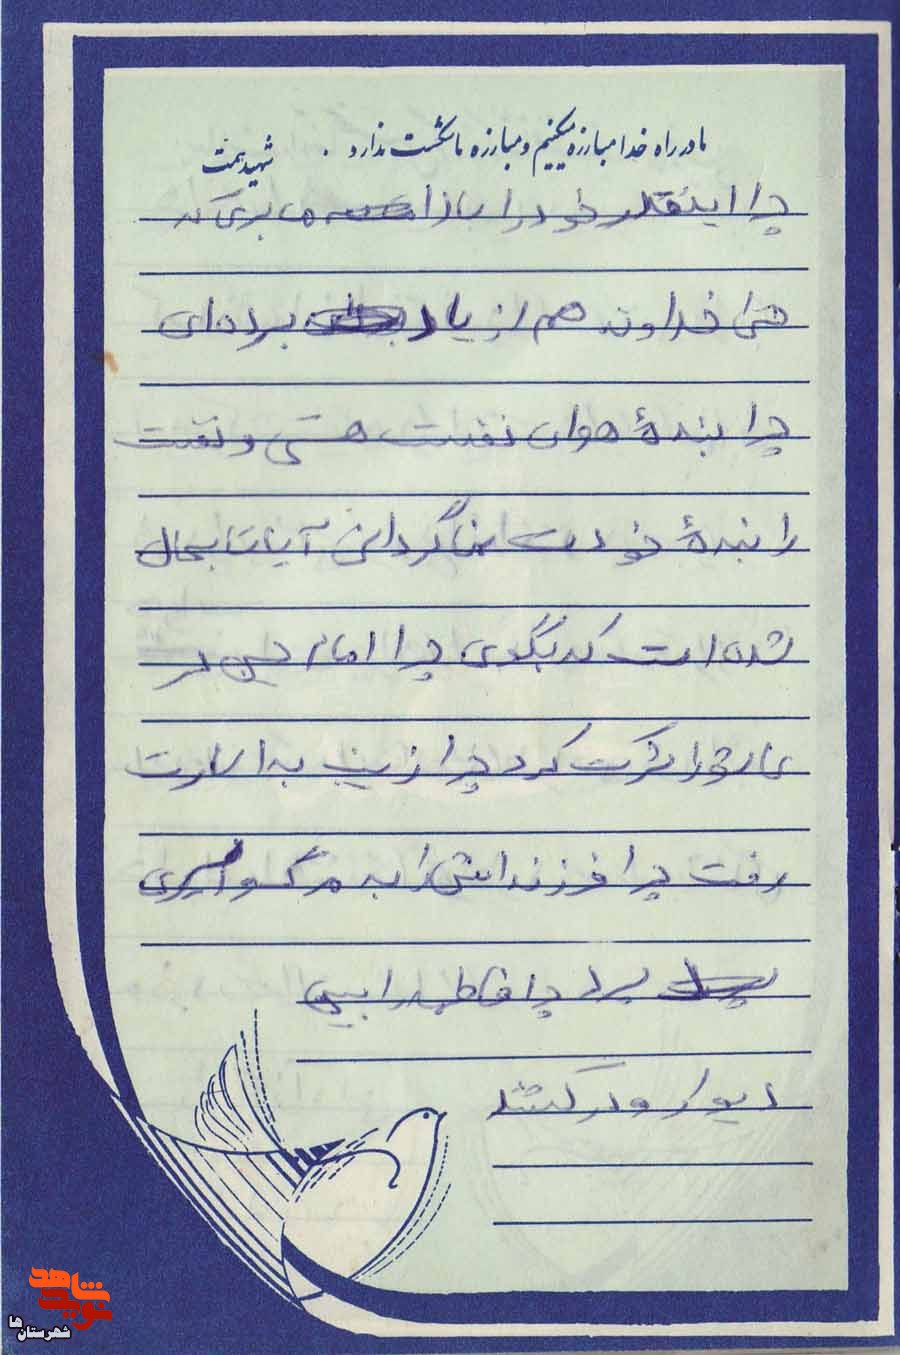 ما در راه خدا مبارزه میکنیم و مبارزه ما شکست ندارد .
شهید همت
چرا اینقدر خود را بالا می‌بری که
حتی خداوند هم از یاد برده‌ای
چرا بندهٔ هوای نفست هستی و نفست
را بندهٔ خودت نمیگردانی آیا تا بحال
شده است که بگوی چرا امام حسین در
عاشورا شرکت کرد چرا زینب به اسارت
رفت چرا فرزندانش را به مرگ و اسیری
برد چرا فاطمه را بین
دیوار و در کشتند
نوید شاهد
شهرستان ها